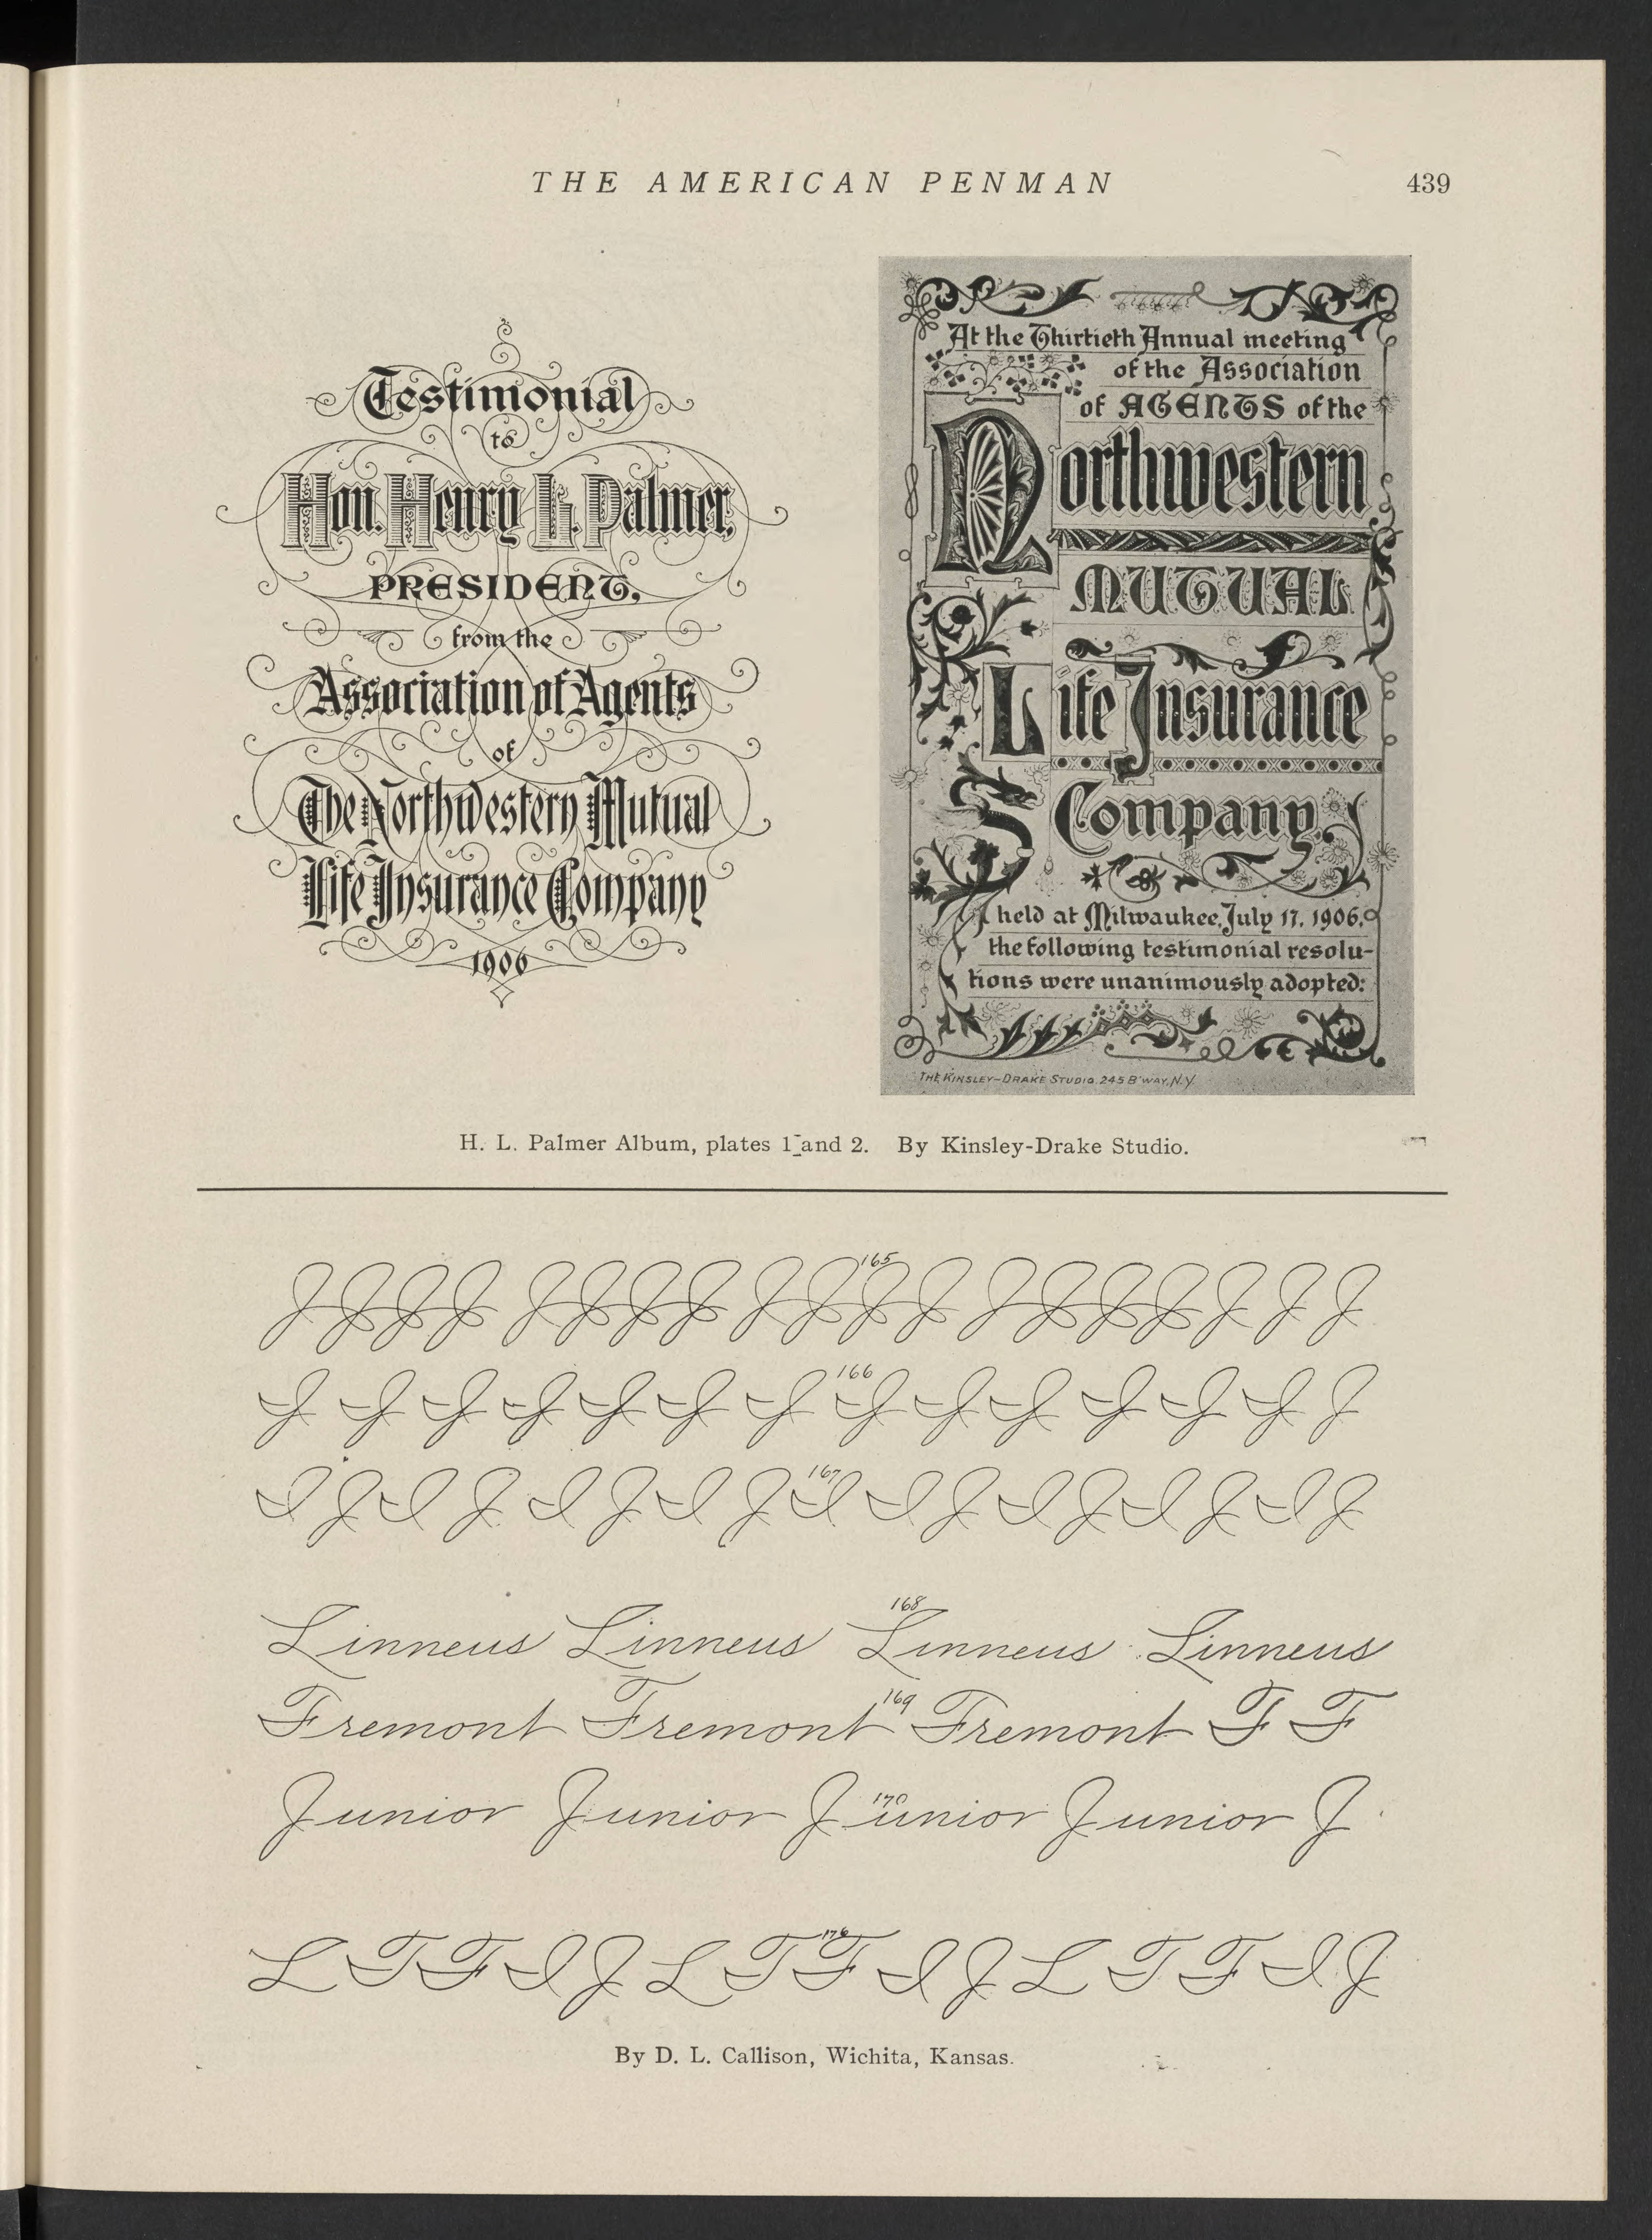 THE AMERICAN PENMAN 439
Testimonial
to
Hon. Henry L. Palmer,
PRESIDENT,
from the
Association of Agents
of
The Northwestern Mutual
Life Insurance Company
1906
At the Thirtieth Annual meeting
of the Association
of AGENTS of the
Northwestern
MUTUAL
Life Insurance
Company,
held at Milwaukee, July 17, 1906,
the following testimonial resolu-
tions were unanimously adopted:
THE KINSLEY-DRAKE STUDIO. 245 B'WAY, N.Y.
H. L. Palmer Album, plates 1 and 2. By Kinsley-Drake Studio.
165
J J J J J J J J J J J J J J J J J J J
166
J J J J J J J J J J J J J J
167
I J I J I J I J I I J I J I J I J
168
Linneus Linneus Linneus Linneus
169
Fremont Fremont Fremont F F
170
Junior Junior Junior Junior J
176
L T F I J L T F I J L T F I J
By D. L. Callison, Wichita, Kansas.